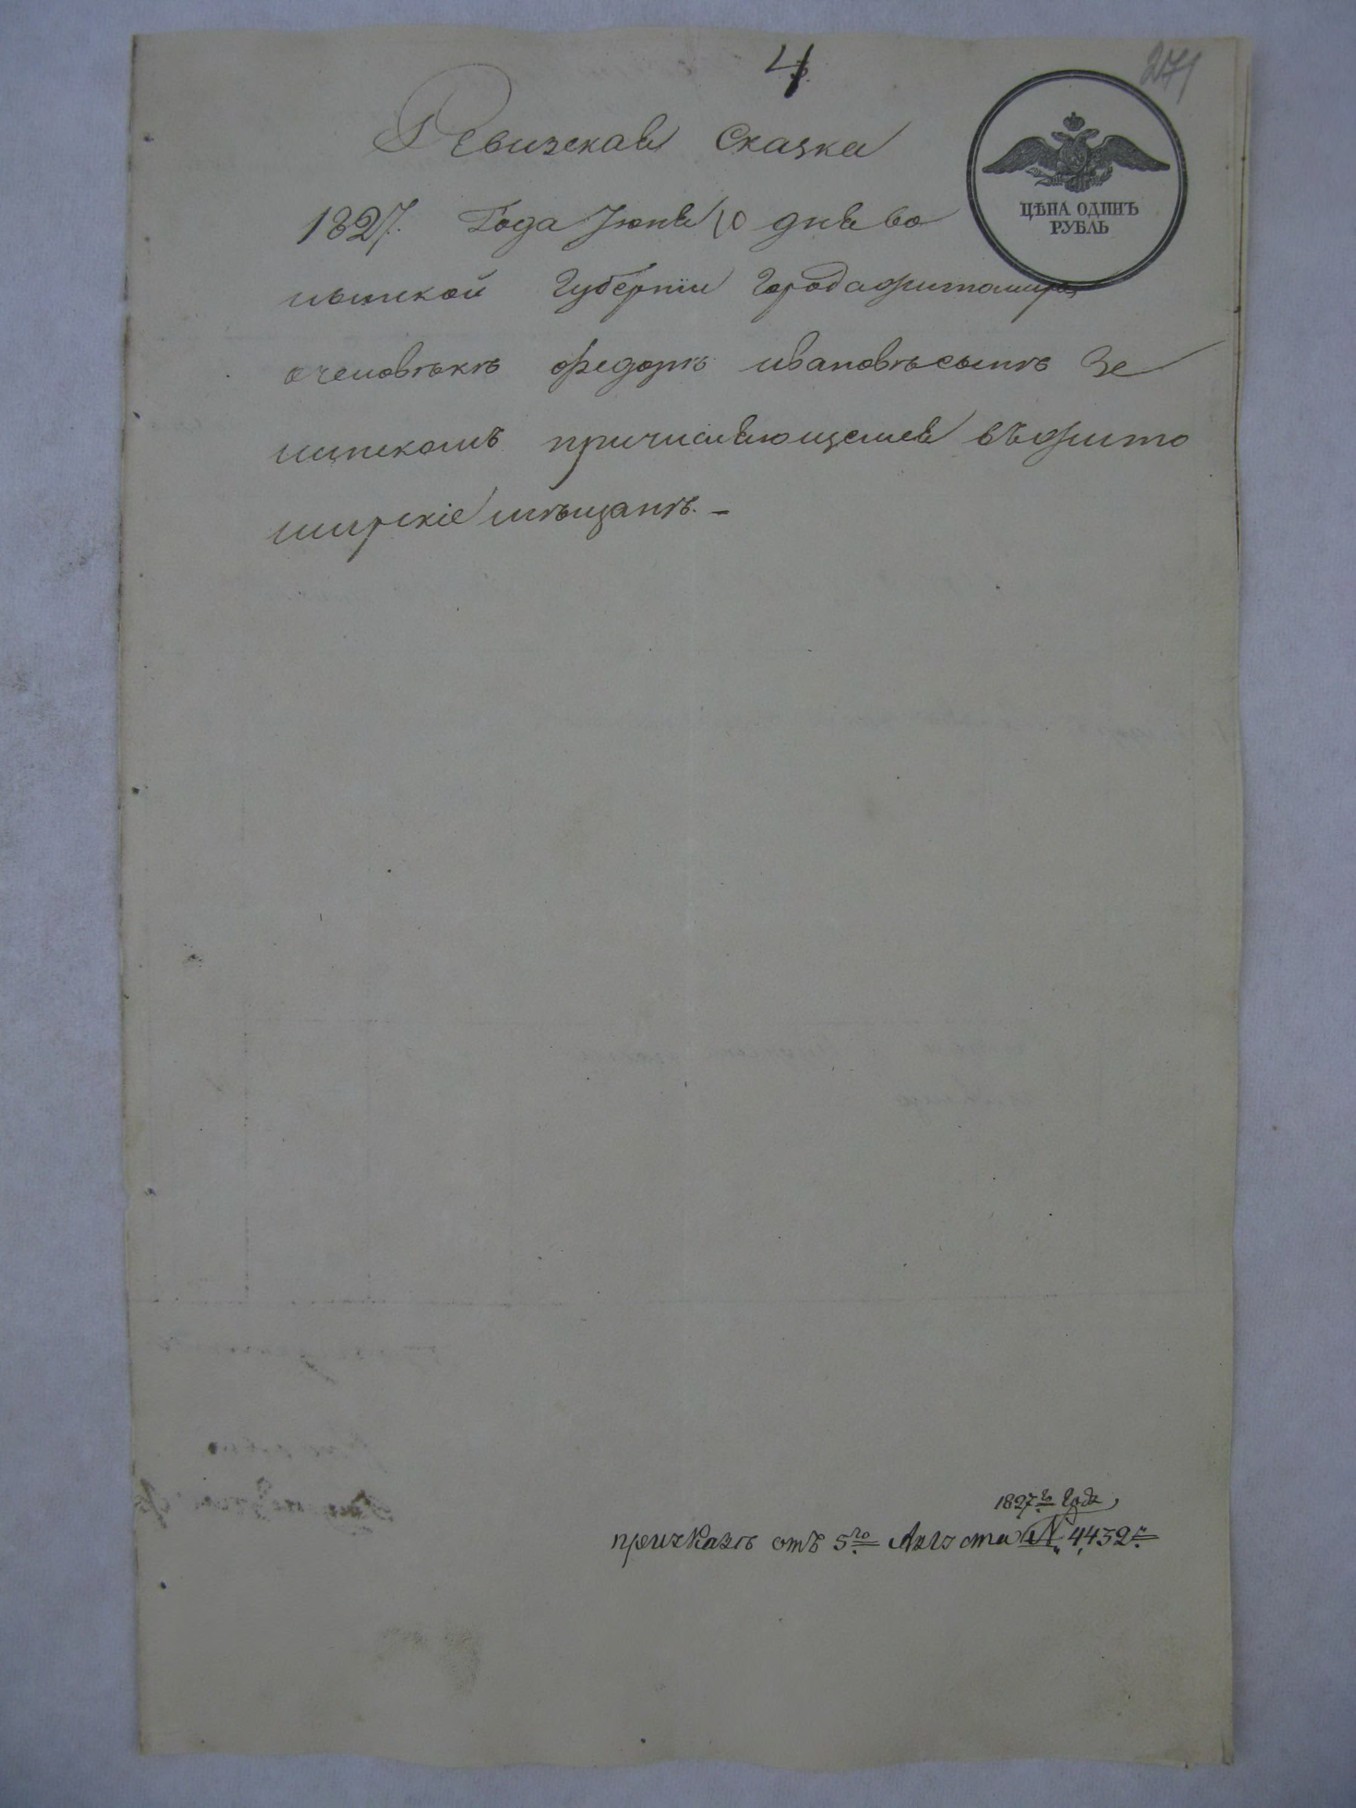 4
271
Ревизская Сказка
ЦѢНА ОДИНЪ
РУБЛЬ
1827. Года Июня 10 дня во
лынской Губернiи Города житомира
очеловѣкѣ федорѣ ивановѣ сынѣ Зе
линскомъ причисляющемся въ жито
мирскiе мѣщанѣ. –
1827го Года
приказъ отъ 5го Августа № 4432й